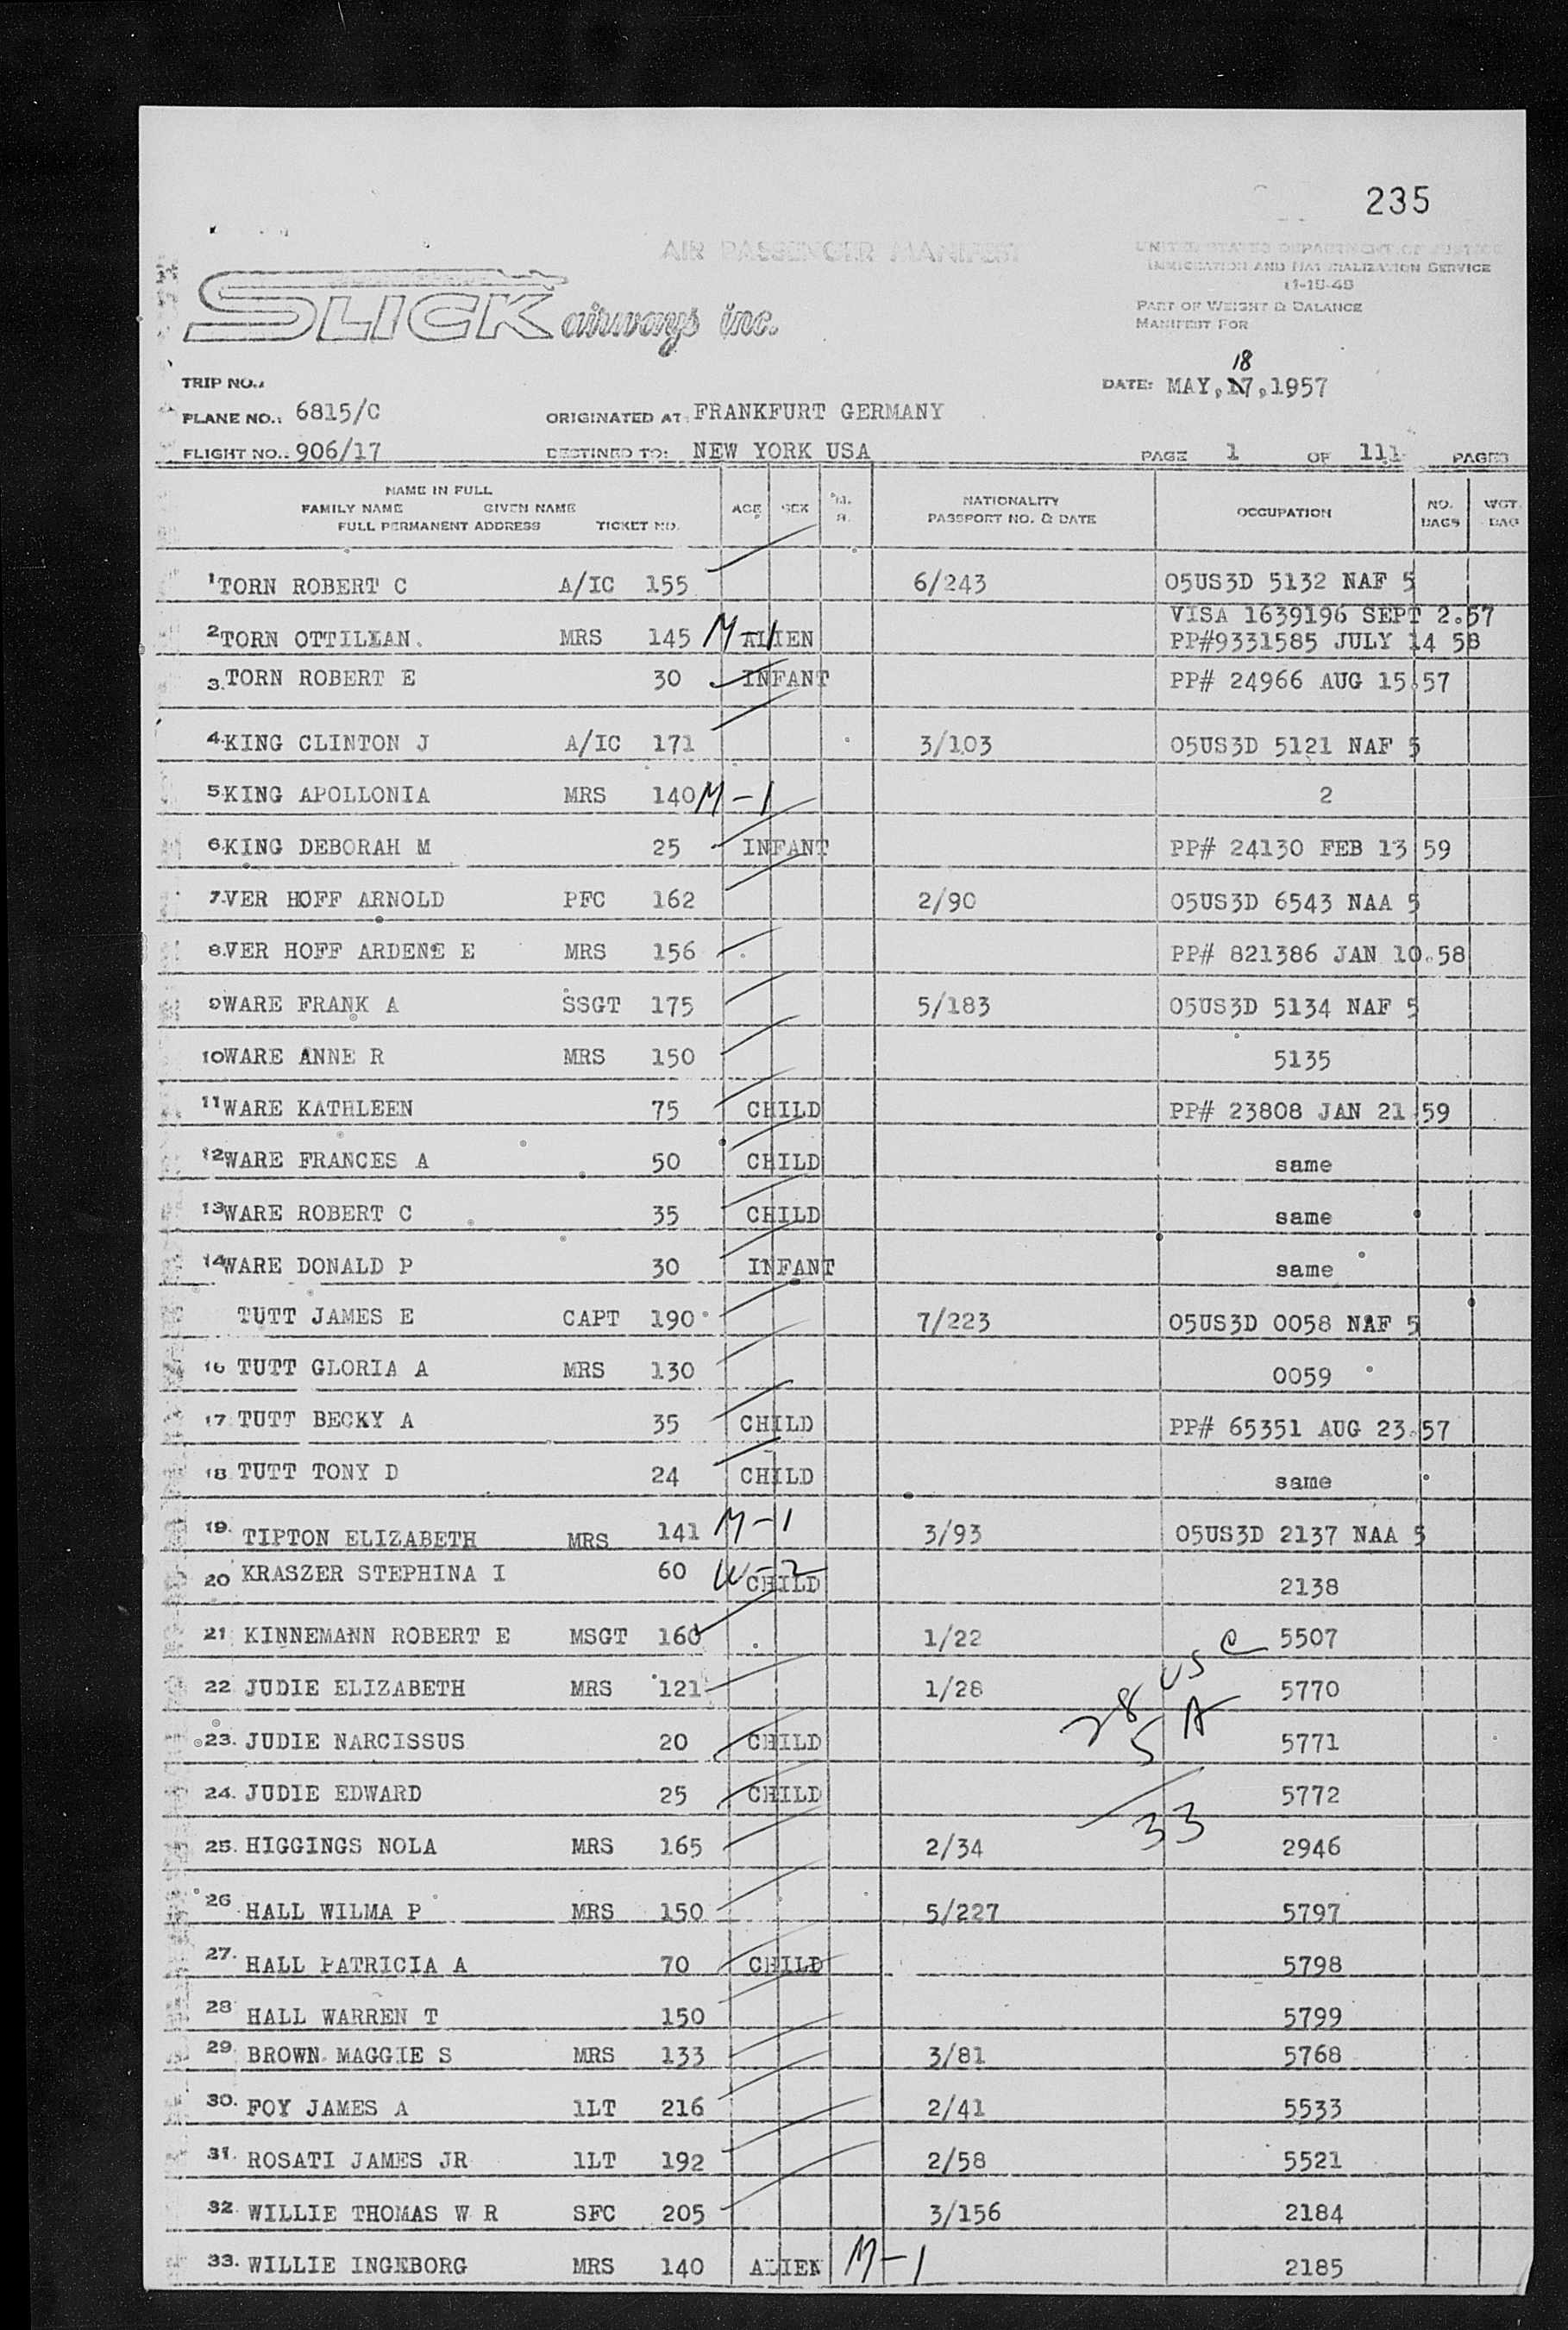 235
AIR PASSENGER MANIFEST
UNITED STATES DEPARTMENT OF JUSTICE
IMMIGRATION AND NATURALIZATION SERVICE
11-18-48
PART OF WEIGHT & BALANCE
MANIFEST FOR
SLICK airways inc.
18
TRIP NO.: DATE: MAY, 17, 1957
PLANE NO.: 6815/C ORIGINATED AT: FRANKFURT GERMANY
FLIGHT NO.: 906/17 DESTINED TO: NEW YORK USA PAGE 1 OF 111 PAGES
NAME IN FULL
FAMILY NAME GIVEN NAME
FULL PERMANENT ADDRESS TICKET NO. AGE SEX M. S. NATIONALITY PASSPORT NO. & DATE OCCUPATION NO. BAGS WGT. BAG
1 TORN ROBERT C A/IC 155 6/243 05US3D 5132 NAF 5
VISA 1639196 SEPT 2.57
2 TORN OTTILIAN. MRS 145 M-1 ALIEN PP#9331585 JULY 14 58
3. TORN ROBERT E 30 INFANT PP# 24966 AUG 15.57
4. KING CLINTON J A/IC 171 3/103 05US3D 5121 NAF 5
5. KING APOLLONIA MRS 140 M-1 2
6. KING DEBORAH M 25 INFANT PP# 24130 FEB 13 59
7. VER HOFF ARNOLD PFC 162 2/90 05US3D 6543 NAA 5
8. VER HOFF ARDENE E MRS 156 PP# 821386 JAN 10.58
9 WARE FRANK A SSGT 175 5/183 05US3D 5134 NAF 5
10 WARE ANNE R MRS 150 5135
11 WARE KATHLEEN 75 CHILD PP# 23808 JAN 21 59
12 WARE FRANCES A 50 CHILD same
13 WARE ROBERT C 35 CHILD same
14 WARE DONALD P 30 INFANT same
TUTT JAMES E CAPT 190 7/223 05US3D 0058 NAF 5
16 TUTT GLORIA A MRS 130 0059
17 TUTT BECKY A 35 CHILD PP# 65351 AUG 23.57
18 TUTT TONY D 24 CHILD same
19. TIPTON ELIZABETH MRS 141 M-1 3/93 05US3D 2137 NAA 5
20 KRASZER STEPHINA I 60 W-2 CHILD 2138
21 KINNEMANN ROBERT E MSGT 160 1/22 5507
22 JUDIE ELIZABETH MRS 121 1/28 28 USC 5770
23. JUDIE NARCISSUS 20 CHILD 5 A 5771
24. JUDIE EDWARD 25 CHILD 5772
25. HIGGINGS NOLA MRS 165 2/34 33 2946
26 HALL WILMA P MRS 150 5/227 5797
27. HALL PATRICIA A 70 CHILD 5798
28 HALL WARREN T 150 5799
29. BROWN MAGGIE S MRS 133 3/81 5768
30. FOY JAMES A 1LT 216 2/41 5533
31. ROSATI JAMES JR 1LT 192 2/58 5521
32. WILLIE THOMAS W R SFC 205 3/156 2184
33. WILLIE INGEBORG MRS 140 ALIEN M-1 2185